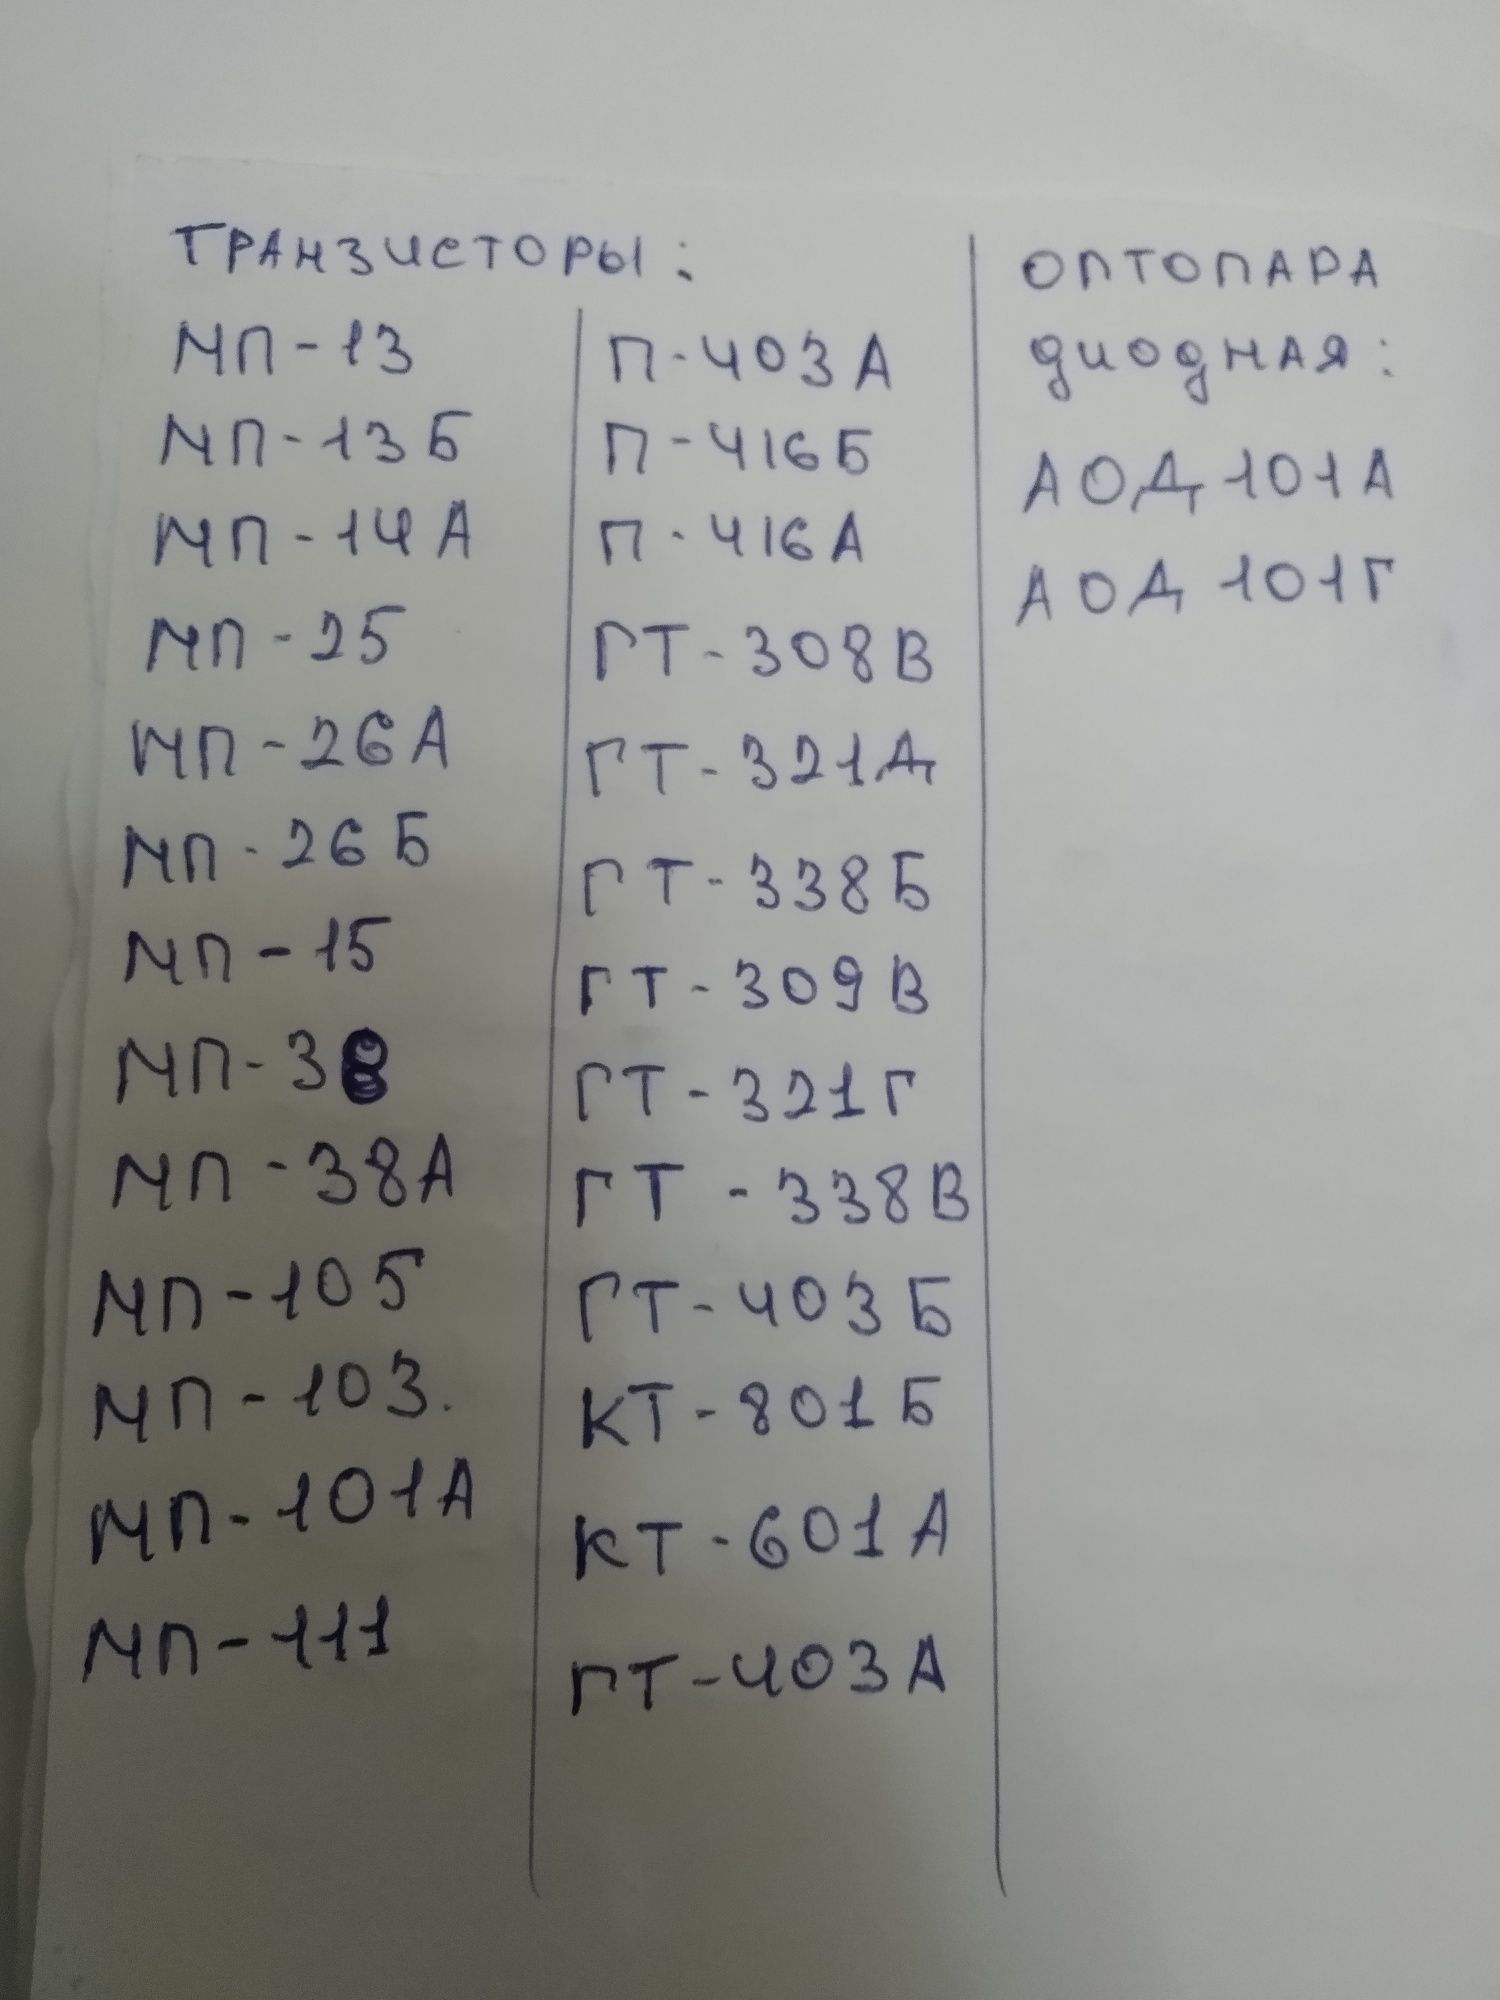 ТРАНЗИСТОРЫ:
МП-13
МП-13Б
МП-14А
МП-25
МП-26А
МП-26Б
МП-15
МП-38
МП-38А
МП-105
МП-103.
МП-101А
МП-111
П-403А
П-416Б
П-416А
ГТ-308В
ГТ-321Д
ГТ-338Б
ГТ-309В
ГТ-321Г
ГТ-338В
ГТ-403Б
КТ-801Б
КТ-601А
ГТ-403А
ОПТОПАРА
диодная:
АОД101А
АОД101Г